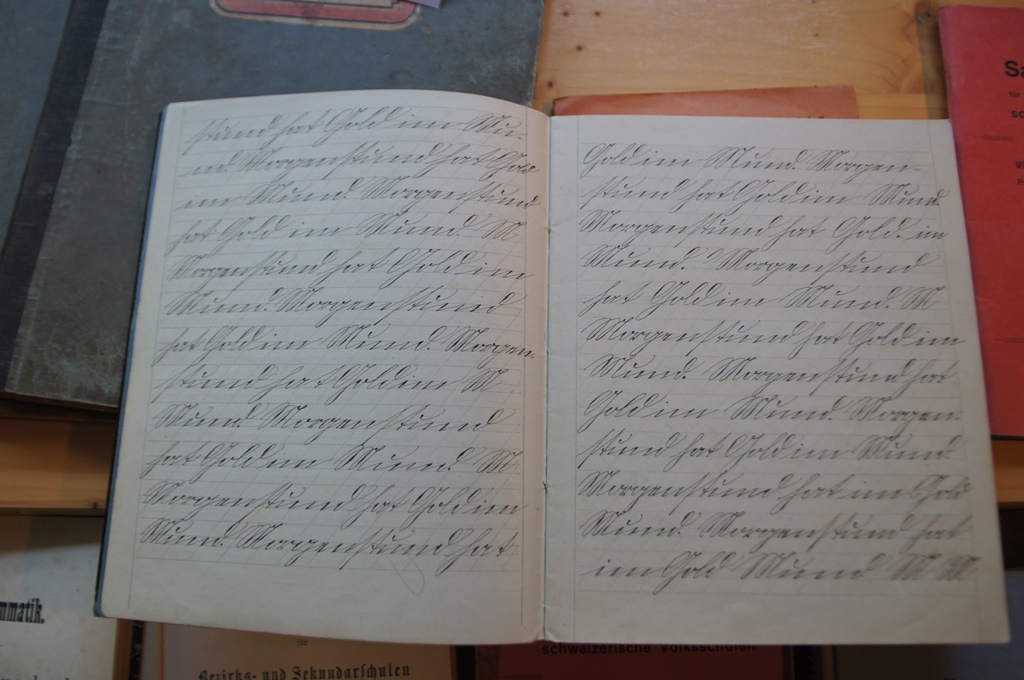 stund hat Gold im Mu-
nd. Morgenstund hat Gold
im Mund. Morgenstund
hat Gold im Mund. M
Morgenstund hat Gold im
Mund. Morgenstund
hat Gold im Mund. Morgen-
stund hat Gold im M
Mund. Morgenstund
hat Gold im Mund. M
Morgenstund hat Gold im
Mund. Morgenstund hat
Gold im Mund. Morgen-
stund hat Gold im Mund
Morgenstund hat Gold im
Mund. Morgenstund
hat Gold im Mund. M
Morgenstund hat Gold im
Mund. Morgenstund hat
Gold im Mund. Morgen-
stund hat Gold im Mund.
Morgenstund hat im Gold
Mund. Morgenstund hat
im Gold Mund M M
Bezirks- und Sekundarschulen
schweizerische Volksschulen